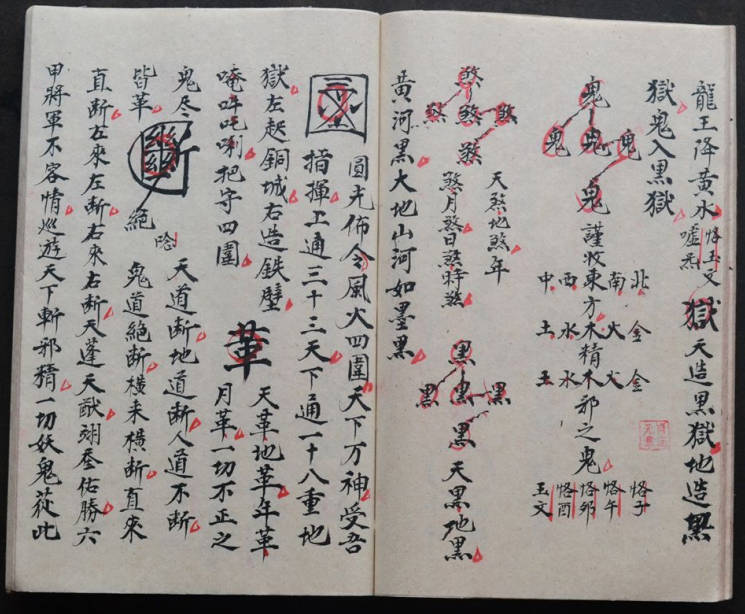 龍王降黃水 恪玉文 噓炁 獄 天造黑獄地造黑
獄鬼入黑獄
鬼 鬼 鬼 鬼 鬼 謹收東方木精木邪之鬼
北 金 金 恪子
南 火 火 恪午
西 水 水 恪卯
中 土 土 恪酉
玉文
煞 煞 煞 煞 煞 天煞地煞年
煞月煞日煞時煞
黑 黑 黑 黑 黑 天黑地黑
黃河黑大地山河如墨黑
圓光佈令風火四圍天下万神受吾
指揮上通三十三天下通一十八重地
獄左起銅城右造鉄壁
唵吽吒唎把守四圍
革 天革地革年革
月革一切不正之
鬼尽
皆革 斷 絕 唸 天道断地道断人道不断
鬼道絕断橫来橫断直來
直断左來左断右來右断天蓬天猷翊圣佑勝六
甲將軍不容情巡遊天下斬邪精一切妖鬼從此